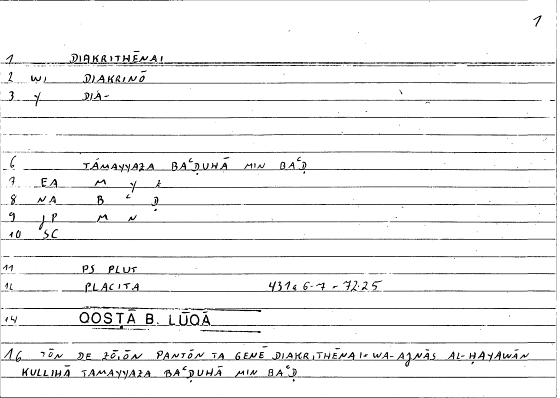 1
1 DIAKRITHĒNAI
2 WI DIAKRINŌ
3 Y DIA-
6 TAMAYYAZA BAʿḌUHĀ MIN BAʿḌ
7 EA M Y Z
8 NA B ʿ Ḍ
9 JP M N
10 SC
11 PS PLUT
12 PLACITA 431a6-7 = 72.25
14 QOSṬĀ B. LŪQĀ
16 TŌN DE ZŌIŌN PANTŌN TA GENĒ DIAKRITHĒNAI = WA-AǦNĀS AL-ḤAYAWĀN
KULLIHĀ TAMAYYAZA BAʿḌUHĀ MIN BAʿḌ